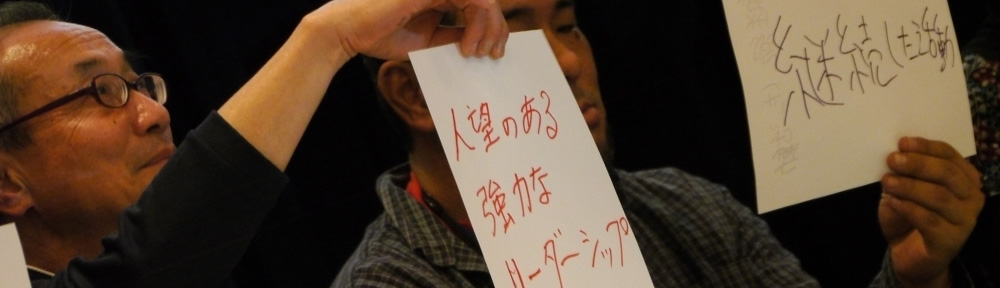 人望のある
強力な
リーダーシップ
継続した活動